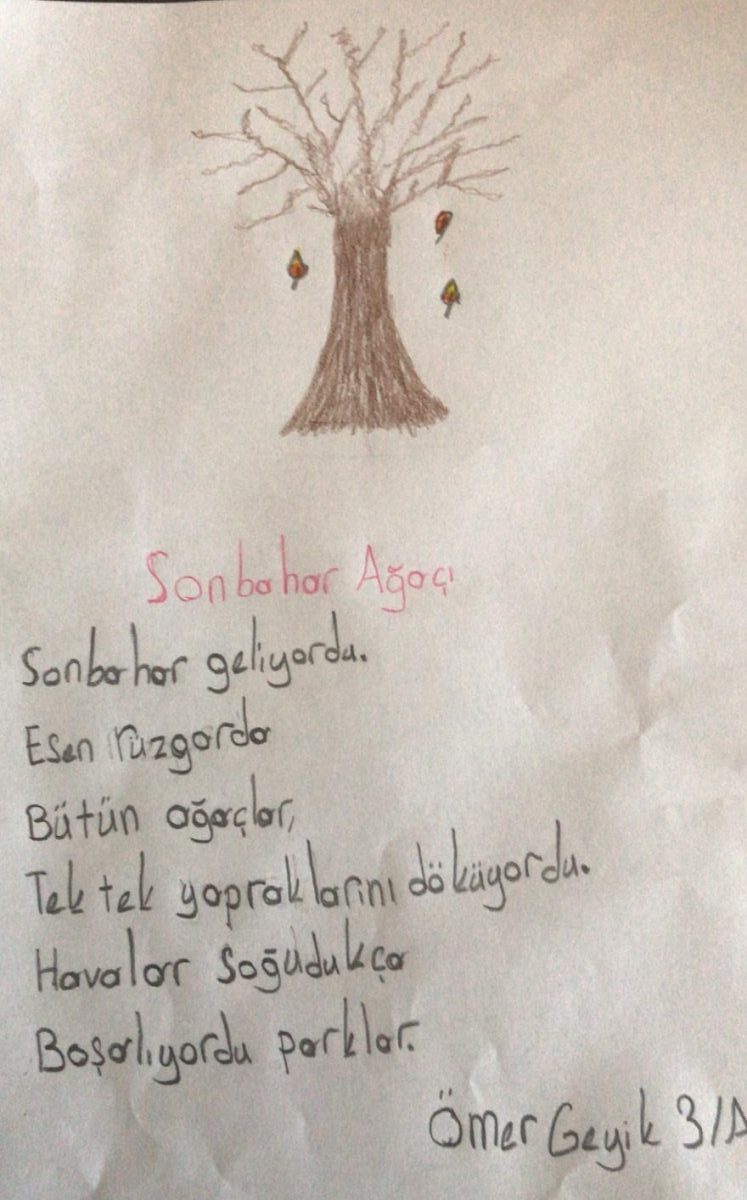 Sonbahar Ağaçı
Sonbahar geliyordu.
Esen rüzgarda
Bütün ağaçlar,
Tek tek yapraklarını döküyordu.
Havalar soğudukça
Boşalıyordu parklar.
Ömer Geyik 3/A